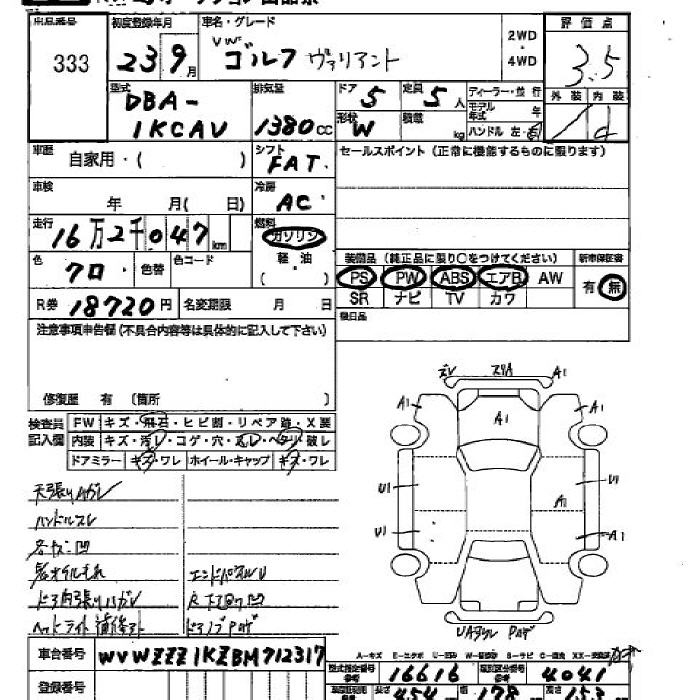 出品番号 初度登録年月 車名・グレード 評価点
333 23 9月 VW ゴルフ ヴァリアント 2WD・4WD 3.5
外装 内装
型式 DBA-1KCAV 排気量 1380cc ドア 5 定員 5人 ディーラー・並行
形状 W 積載 kg モデル年式 年
ハンドル 左・右
車歴 自家用・( ) シフト FAT セールスポイント(正常に機能するものに限ります)
車検 年 月( 日) 冷房 AC
走行 16万2千047km 燃料 ガソリン
軽油
( )
色 クロ 色替 色コード
装備品(純正品に限り○をつけてください) 新車保証書
PS PW ABS エアB AW 有・無
SR ナビ TV カワ
R券 18720円 名変期限 月 日 後日品
注意事項申告欄(不具合内容等は具体的に記入して下さい)
修復歴 有〔箇所 〕
検査員記入欄 FW キズ・飛石・ヒビ割・リペア跡・X要
内装 キズ・汚レ・コゲ・穴・スレ・ヘタリ・破レ
ドアミラー キズ・ワレ ホイール・キャップ キズ・ワレ
天張りハガレ
ハンドルスレ
エンドパネルU
ドア内張りハガレ R下廻り凹
ヘッドライト補修キズ ドアノブPハゲ
ズレ スリA A1
A1 A1 A1
U1 U1
A1
U1 A1
UAタワレ Pハゲ
A-キズ E-エクボ U-凹み W-補修跡 S-サビ C-腐食 XX-交換済
車台番号 WVWZZZ1KZBM712317
型式指定番号 16616 類別区分番号 4041
登録番号 長さ 454 幅 178 高さ 153